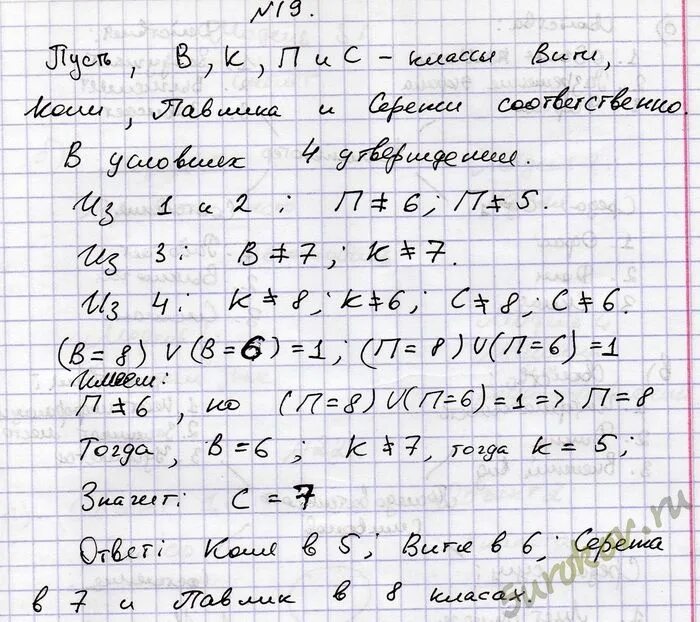 №19.
Пусть, В, К, П и С – классы Вити,
Коли, Павлика и Сережи соответственно.
В условиях 4 утверждения.
Из 1 и 2: П ≠ 6; П ≠ 5.
Из 3: В ≠ 7; К ≠ 7.
Из 4: К ≠ 8; К ≠ 6; С ≠ 8; С ≠ 6.
(В = 8) V (В = 6) = 1; (П = 8) V (П = 6) = 1
Имеем:
П ≠ 6, но (П = 8) V (П = 6) = 1 => П = 8
Тогда, В = 6; К ≠ 7, тогда К = 5;
Значит: С = 7
Ответ: Коля в 5; Витя в 6; Сережа
в 7 и Павлик в 8 класах.
5urokov.ru